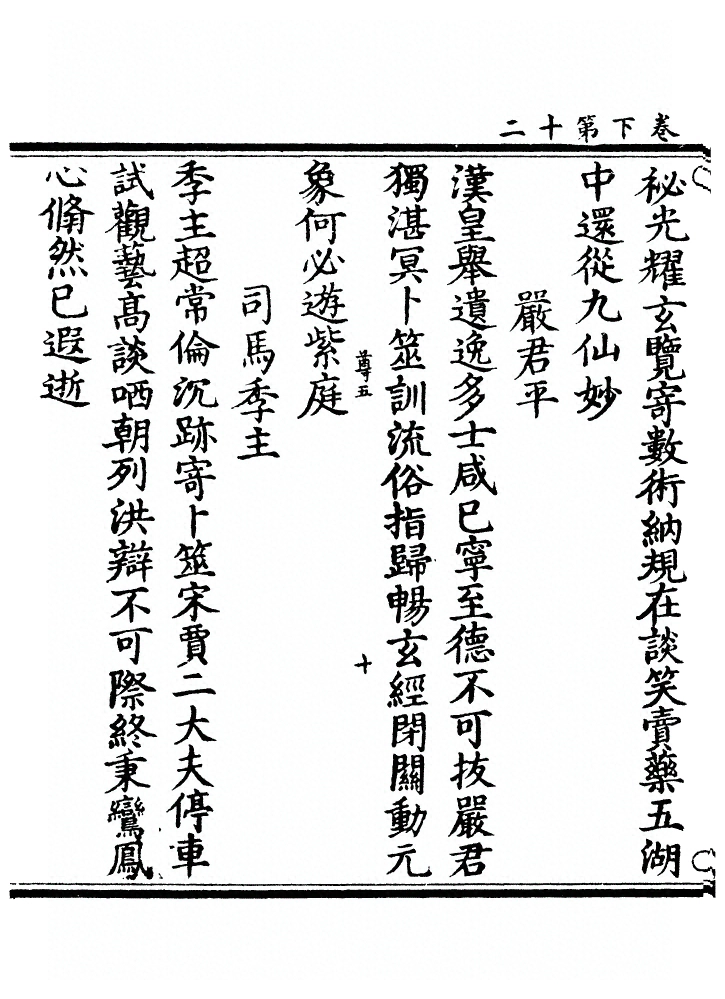 卷下第十二
秘光耀玄覽寄數術納規在談笑賣藥五湖
中還從九仙妙
嚴君平
漢皇舉遺逸多士咸已寧至德不可拔嚴君
獨湛冥卜筮訓流俗指歸暢玄經閉關動元
象何必遊紫庭
尊五
十
司馬季主
季主超常倫沉跡寄卜筮宋賈二大夫停車
試觀藝高談哂朝列洪辯不可際終秉鸞鳳
心翛然已遐逝